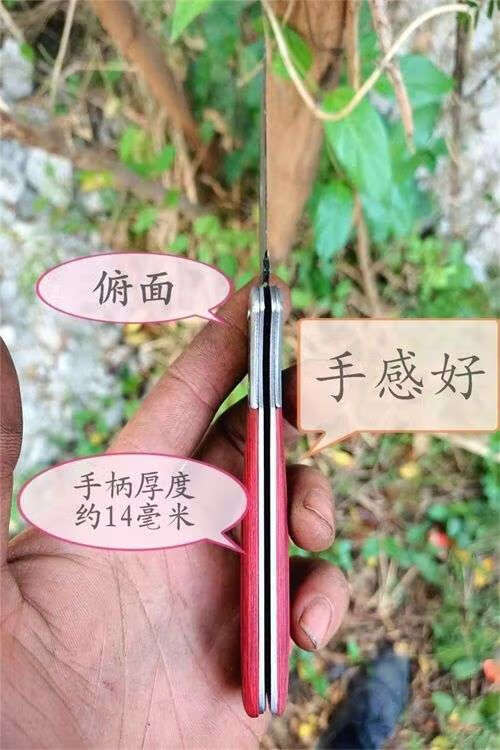 俯面
手感好
手柄厚度
约14毫米